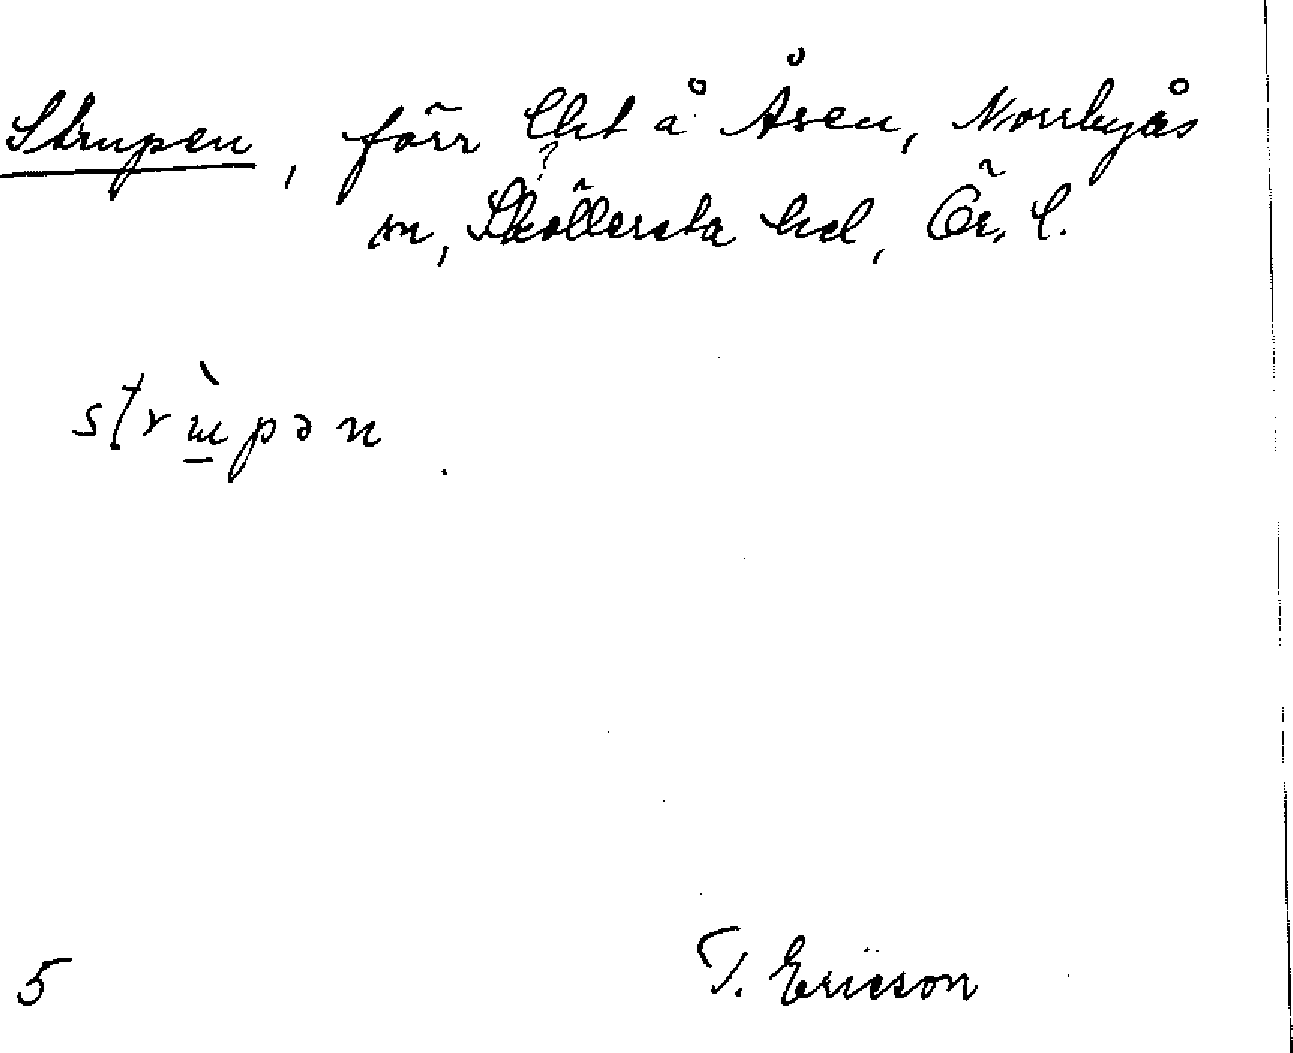 Strupen, förr lht å Åsen, Norrbyås
sn, Sköllersta hd, Ör. l.
?
strɯ̀pən
5 T. Ericson